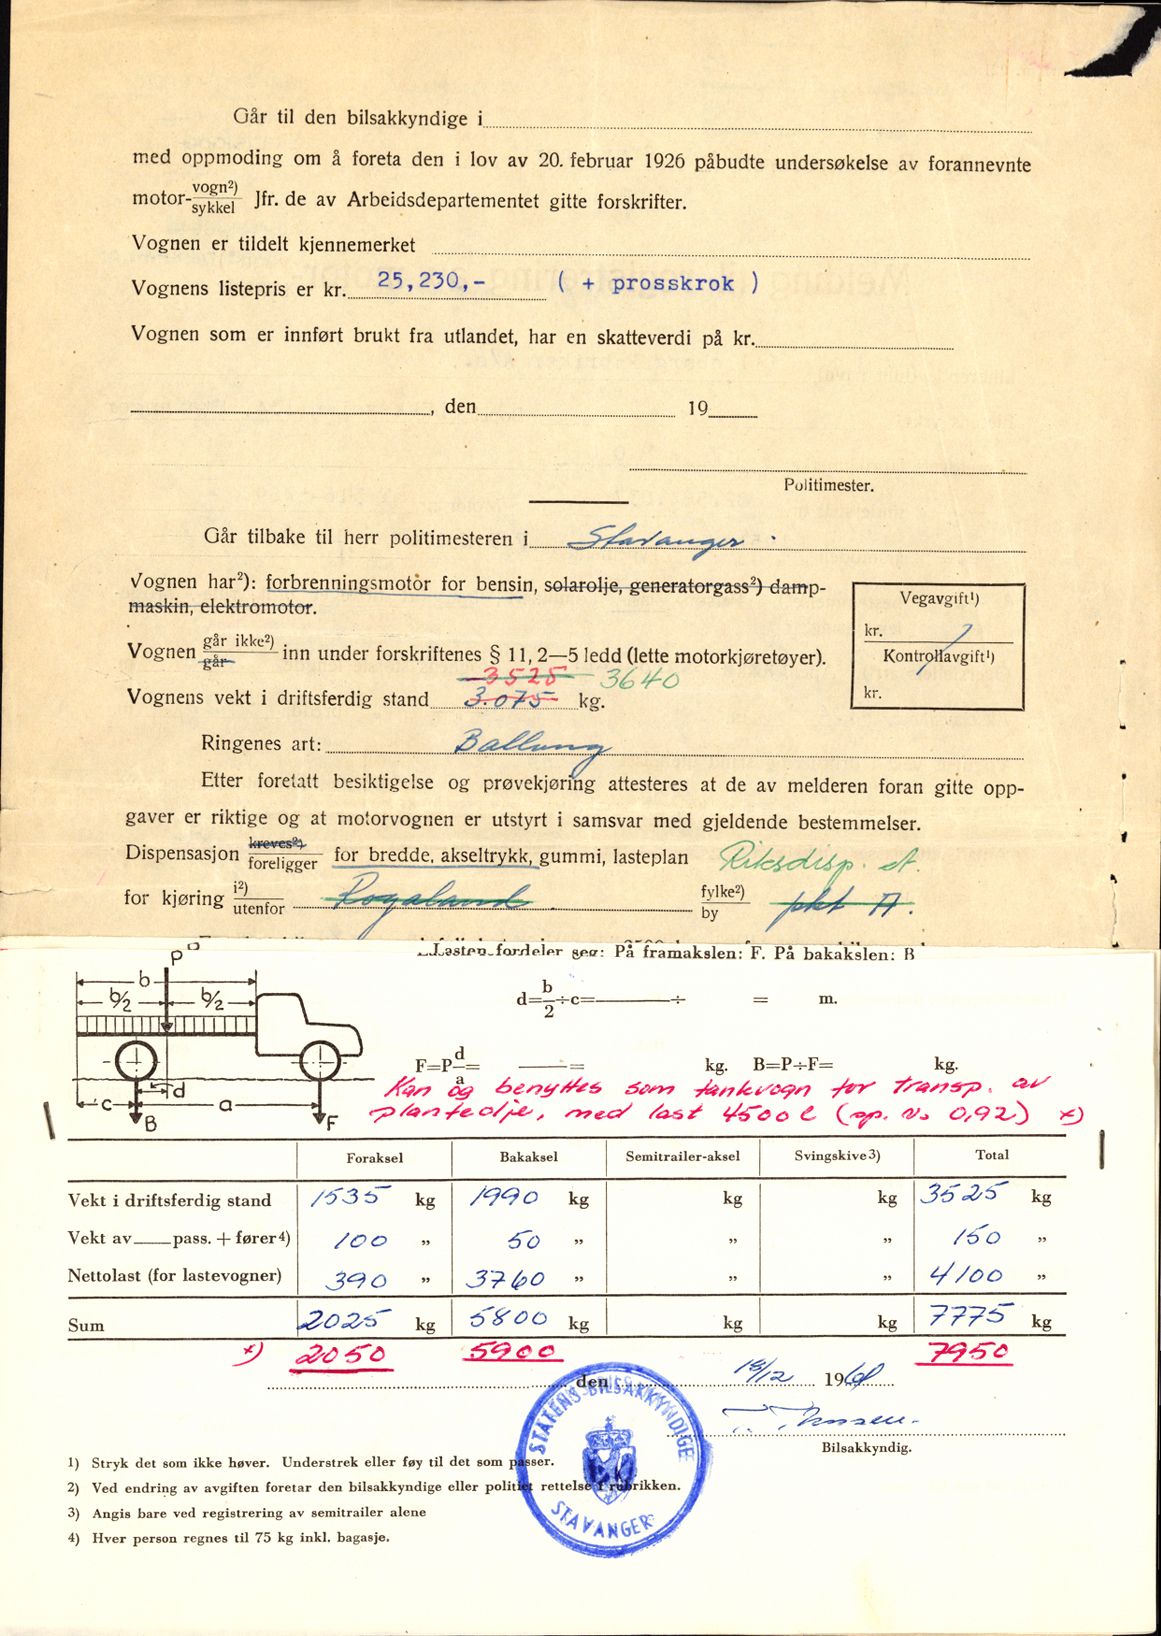 Går til den bilsakkyndige i
med oppmoding om å foreta den i lov av 20. februar 1926 påbudte undersøkelse av forannevnte
motor- vogn²) / sykkel Jfr. de av Arbeidsdepartementet gitte forskrifter.
Vognen er tildelt kjennemerket
Vognens listepris er kr. 25,230,- ( + prosskrok )
Vognen som er innført brukt fra utlandet, har en skatteverdi på kr.
, den 19
Politimester.
Går tilbake til herr politimesteren i Stavanger.
Vognen har²): forbrenningsmotor for bensin, solarolje, generatorgass²) damp-
maskin, elektromotor.
Vegavgift¹)
kr.
Kontrollavgift¹)
kr.
Vognen går ikke²) / går inn under forskriftenes § 11, 2—5 ledd (lette motorkjøretøyer).
3525 3640
Vognens vekt i driftsferdig stand 3.075 kg.
Ringenes art: Ballong
Etter foretatt besiktigelse og prøvekjøring attesteres at de av melderen foran gitte opp-
gaver er riktige og at motorvognen er utstyrt i samsvar med gjeldende bestemmelser.
Dispensasjon kreves²) / foreligger for bredde, akseltrykk, gummi, lasteplan Riksdisp. at.
for kjøring i²) / utenfor Rogaland fylke²) / by pkt A.
Lasten fordeler seg: På framakslen: F. På bakakslen: B
P
b
b/2 b/2
d= b/2 ÷c= ÷ = m.
F=P d/a = = kg. B=P÷F= kg.
c d a
B F
Kan og benyttes som tankvogn for transp. av
planteolje, med last 4500 l (sp. v. 0,92) x)
Foraksel Bakaksel Semitrailer-aksel Svingskive 3) Total
Vekt i driftsferdig stand 1535 kg 1990 kg kg kg 3525 kg
Vekt av pass. + fører 4) 100 „ 50 „ „ „ 150 „
Nettolast (for lastevogner) 390 „ 3760 „ „ „ 4100 „
Sum 2025 kg 5800 kg kg kg 7775 kg
x) 2050 5900 7950
den 19
Bilsakkyndig.
STATENS BILSAKKYNDIGE
STAVANGER
1) Stryk det som ikke høver. Understrek eller føy til det som passer.
2) Ved endring av avgiften foretar den bilsakkyndige eller politiet rettelse i rubrikken.
3) Angis bare ved registrering av semitrailer alene
4) Hver person regnes til 75 kg inkl. bagasje.